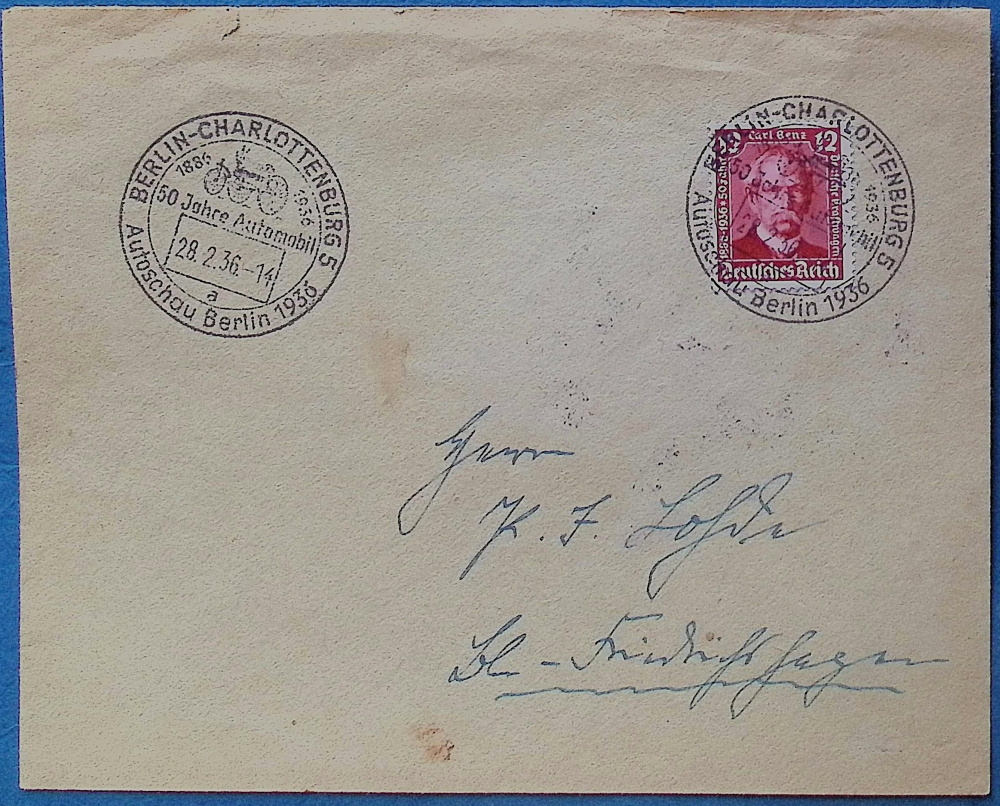 BERLIN-CHARLOTTENBURG 5
1886 1936
50 Jahre Automobil
28.2.36.-14
a
Autoschau Berlin 1936
BERLIN-CHARLOTTENBURG 5
1936
Autoschau Berlin 1936
12 Carl Benz 12
1886-1936 * 50 Jahre
Deutsche Kraftwagen
Deutsches Reich
Herrn
P. F. Lohde
Bln - Friedrichshagen